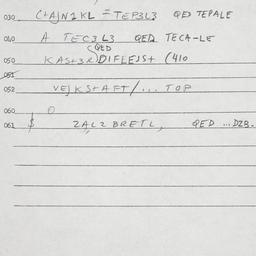 030 C+AJN1KL = TEP3L3 QED TEPALE
040 A TEC3L3 QED TECA-LE
QED
050 KAS+3R DIFLEJS+ (410
051
052 VEJKS+AFT/... TOP
060 0
061 $ ZALZ BRETL, QED ... DZB.